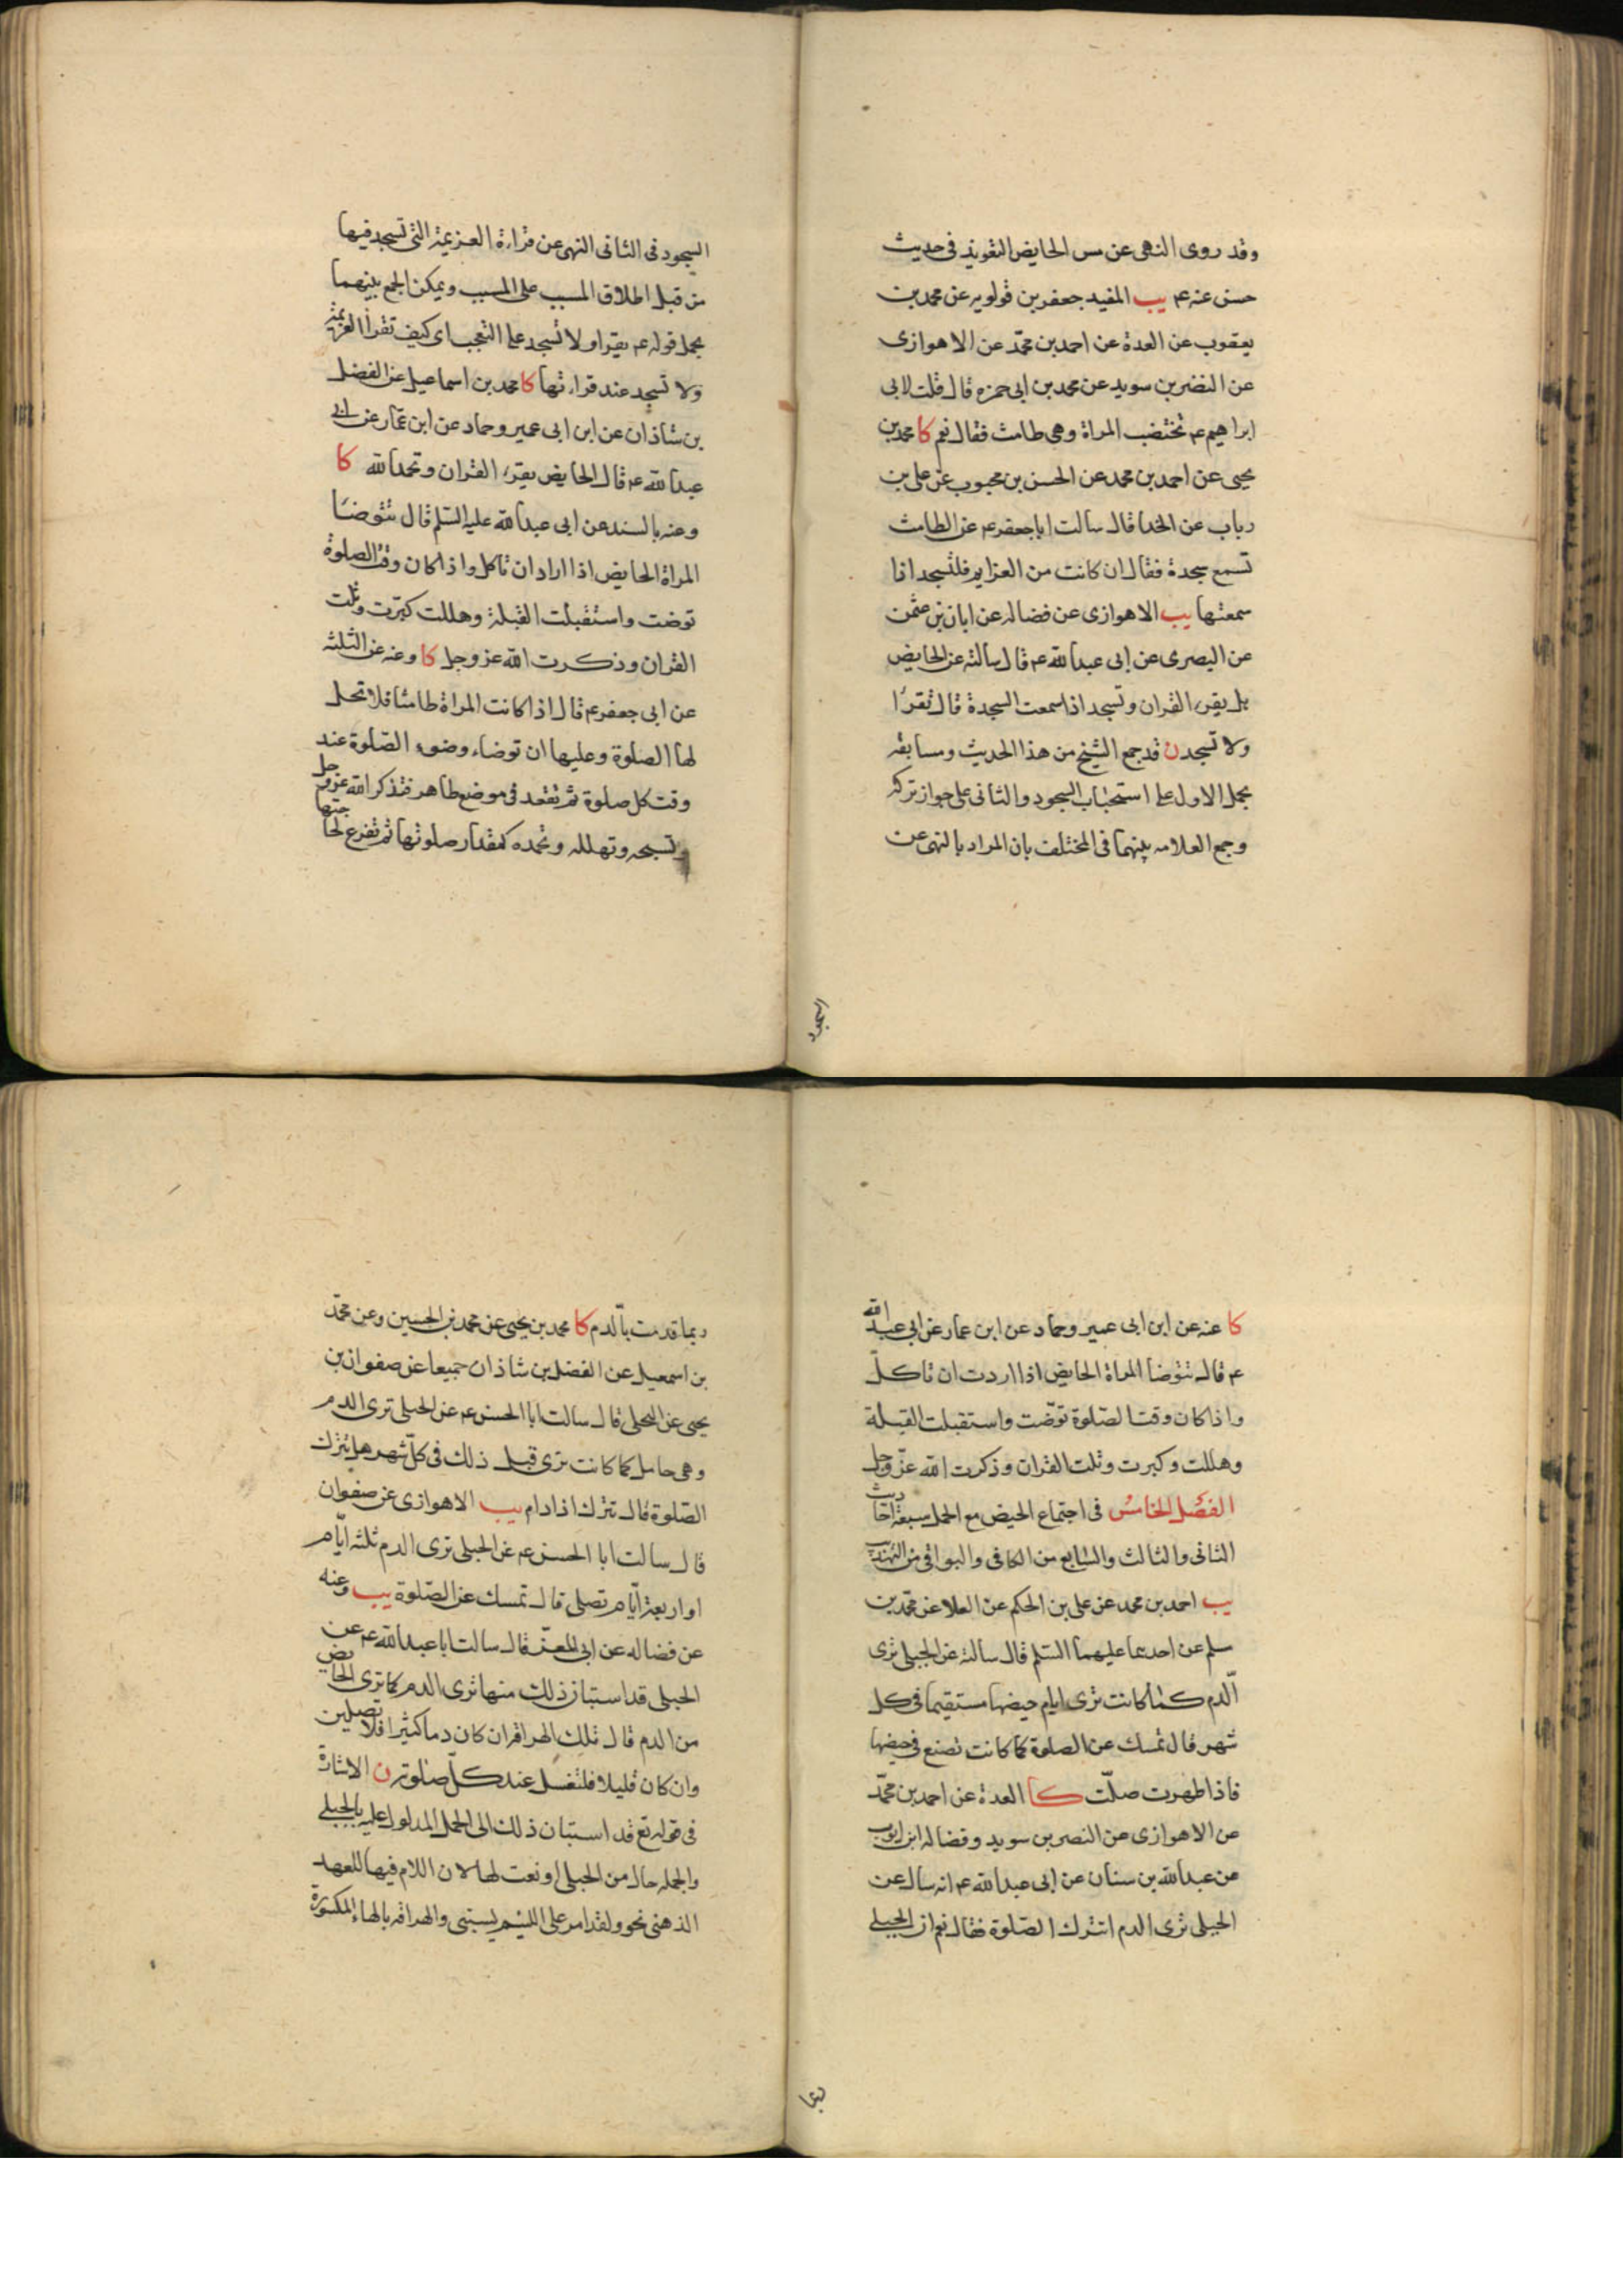 وقد روى النهى عن مس الحايض التعويذ فى حديث
حسن عنه ع‍م يب المفيد جعفر بن قولويه عن محمد بن
يعقوب عن العدة عن احمد بن محمّد عن الاهوازى
عن النضر بن سويد عن محمد بن ابى حمزه قال قلت لابى
ابراهيم ع‍م تختضب المراة وهى طامث فقال نعم كا محمد بن
يحيى عن احمد بن محمد عن الحسن بن محبوب عن على بن
رياب عن الحذا قال سالت ابا جعفر ع‍م عن الطامث
تسمع سجدة فقال ان كانت من العزايم فلتسجد اذا
سمعتها يب الاهوازى عن فضاله عن ابان بن عثمن
عن البصرى عن ابى عبد الله ع‍م قال سالته عن الحايض
هل يقرء القران وتسجد اذا سمعت السجدة قال تقرا
ولا تسجد ن قد جمع الشيخ من هذا الحديث ومسابقه
بحمل الاول على استحباب السجود والثانى على جواز تركه
وجمع العلامه بينهما فى المختلف بان المراد بالنهى عن
السجود
السجود فى الثانى النهى عن قراءة العزيمة التى تسجد فيها
من قبل اطلاق المسبب على السبب ويمكن الجمع بينهما
بحمل قوله ع‍م يقرا ولا تسجد على التعجب اى كيف تقرا العزيمة
ولا تسجد عند قراءتها كا محمد بن اسماعيل عن الفضل
بن شاذان عن ابن ابى عمير وحماد عن ابن عمّار عن ابى
عبد الله ع‍م قال الحايض يقرء القران وتحمد الله كا
وعنه بالسند عن ابى عبد الله عليه السّلم قال تتوضا
المراة الحايض اذا اراد ان تاكل واذا كان وقت الصلوة
توضت واستقبلت القبلة وهللت كبّرت وتلت
القران وذكرت الله عز وجل كا وعنه عن الثلثه
عن ابى جعفر ع‍م قال اذا كانت المراة طامثا فلا تحل
لها الصلوة وعليها ان توضاء وضوء الصّلوة عند
وقت كل صلوة ثم تقعد فى موضع طاهر فتذكر الله عز وجل
وتسبحه وتهلله وتحمده كمقدار صلوتها ثم تفرغ لحاجتها
كا عنه عن ابن ابى عمير وحماد عن ابن عمار عن ابى عبد الله
ع‍م قال تتوضا المراة الحايض اذا اردت ان تاكل
واذا كان وقت الصّلوة توضّت واستقبلت القبلة
وهللت وكبرت وتلت القران وذكرت الله عزّ وجل
الفصل الخامس فى اجتماع الحيض مع الحمل سبعة احاديث
الثانى والثالث والسّابع من الكافى والبواقى من التهذيب
يب احمد بن محمد عن على بن الحكم عن العلا عن محمّد بن
سلم عن احدهما عليهما السّلم قال سالته عن الحبلى ترى
الّدم كما كانت ترى ايام حيضها مستقيما فى كل
شهر قال تمسك عن الصلوة كما كانت تصنع فى حيضها
فاذا طهرت صلّت كا العدة عن احمد بن محمّد
عن الاهوازى عن النضر بن سويد وفضاله ابن ايوب
عن عبد الله بن سنان عن ابى عبد الله ع‍م انه سال عن
الحبلى ترى الدم اتترك الصّلوة فقال نعم ان الحبلى
ربما
ربما قذفت بالّدم كا محمد بن يحيى عن محمد بن الحسين وعن محمّد
بن اسمعيل عن الفضل بن شاذان جميعا عن صفوان بن
يحيى عن البجلى قال سالت ابا الحسن ع‍م عن الحبلى ترى الدم
وهى حامل كما كانت ترى قبل ذلك فى كلّ شهر هل تترك
الصّلوة قال تترك اذا دام يب الاهوازى عن صفوان
قال سالت ابا الحسن ع‍م عن الحبلى ترى الدم ثلثه ايّام
او اربعة ايّام تصلى قال تمسك عن الصّلوة يب وعنه
عن فضاله عن ابى المعزا قال سالت ابا عبد الله ع‍م عن
الحبلى قد استبان ذلك منها ترى الدم كما ترى الحايض
من الدم قال تلك الهراقه ان كان دما كثيرا فلا تصلين
وان كان قليلا فلتغسل عند كلّ صلوتين ن الاشارة
فى قوله تع قد استبان ذلك الى الحمل المدلول عليه بالحبلى
والجمله حال من الحبلى او نعت لها لان اللام فيها للعهد
الذهنى نحو ولقد امر على اللئيم يسبنى والهراقه بالهاء المكسورة